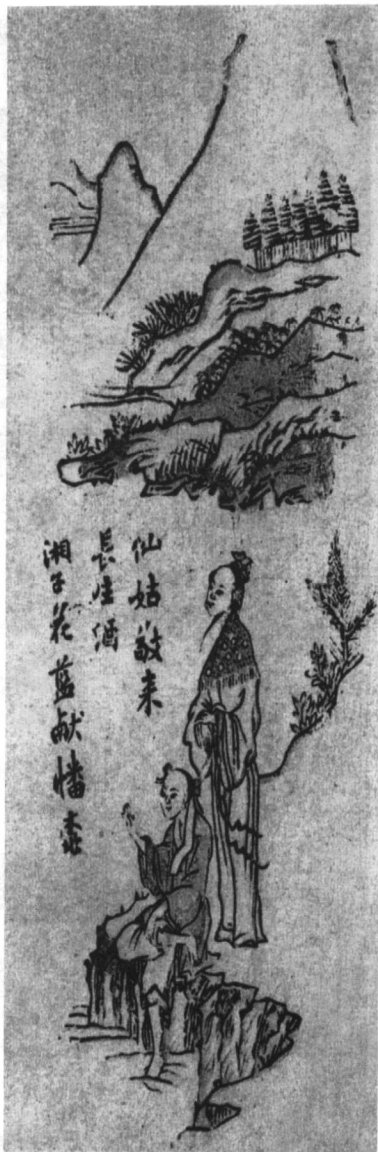 仙姑敬来
長生酒
湘子花蓝献幡桃